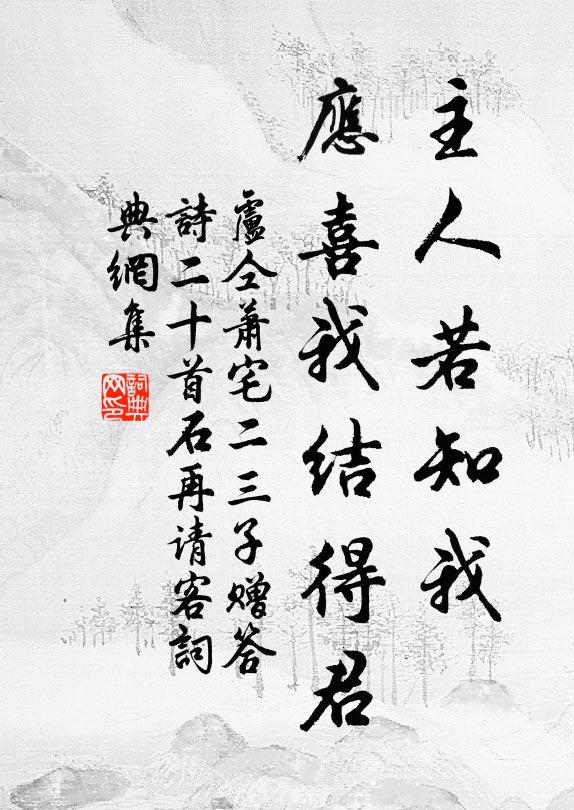 主人若知我
應喜我結得君
盧仝蕭宅二三子赠答
詩二十首石再请客詞
典網集
詞典网印